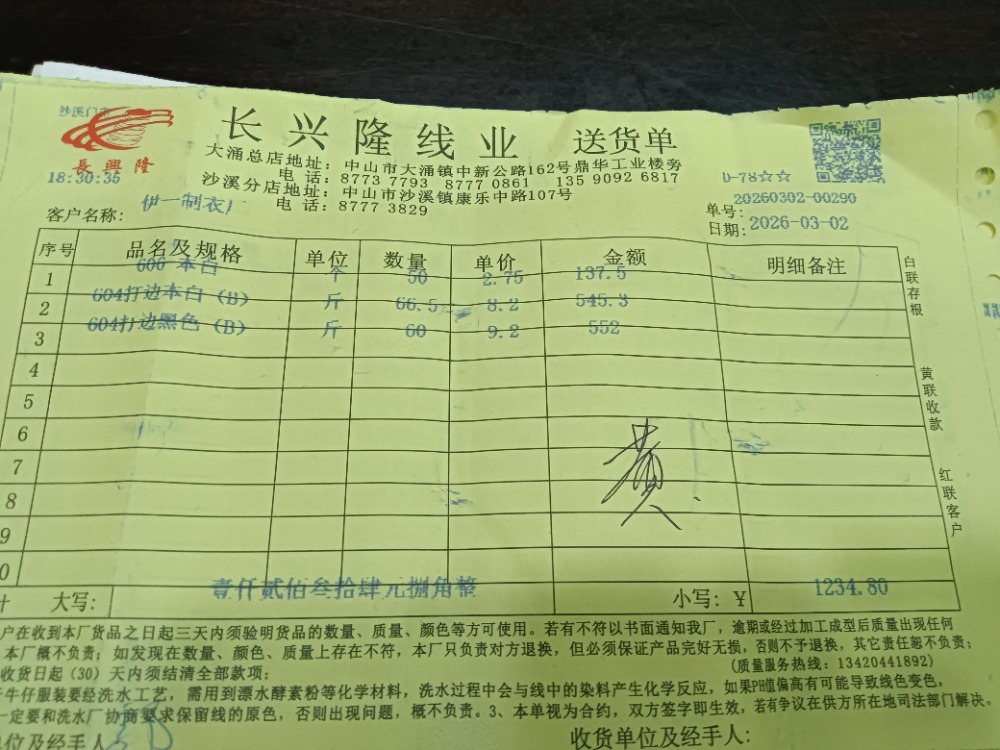 沙溪门市
長興隆
18:30:35
长兴隆线业 送货单
大涌总店地址：中山市大涌镇中新公路162号鼎华工业楼旁
电话：8773 7793 8777 0861 135 9092 6817
沙溪分店地址：中山市沙溪镇康乐中路107号
电话：8777 3829
D-78☆☆
客户名称：伊一制衣厂
单号：20260302-00290
日期：2026-03-02
序号 品名及规格 单位 数量 单价 金额 明细备注
1 606 本白 个 50 2.75 137.5
2 604打边本白（B） 斤 66.5 8.2 545.3
3 604打边黑色（B） 斤 60 9.2 552
4
5
6
7
8
9
0
黄
大写： 壹仟贰佰叁拾肆元捌角整 小写：￥ 1234.80
白联存根
黄联收款
红联客户
户在收到本厂货品之日起三天内须验明货品的数量、质量、颜色等方可使用。若有不符以书面通知我厂，逾期或经过加工成型后质量出现任何
本厂概不负责；如发现在数量、颜色、质量上存在不符，本厂只负责对方退换，但必须保证产品完好无损，否则不予退换，其它责任恕不负责；
收货日起（30）天内须结清全部款项；
(质量服务热线：13420441892)
牛仔服装要经洗水工艺，需用到漂水酵素粉等化学材料，洗水过程中会与线中的染料产生化学反应，如果PH值偏高有可能导致线色变色，
一定要和洗水厂协商要求保留线的原色，否则出现问题，概不负责。3、本单视为合约，双方签字即生效，若有争议在供方所在地司法部门解决。
位及经手人
收货单位及经手人：